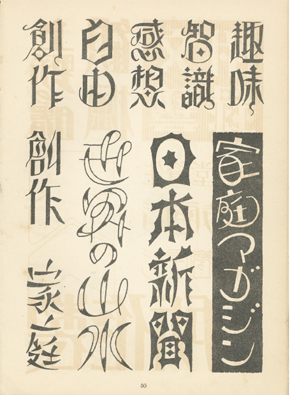 趣味
智識
感想
自由
創作
家庭マガジン
日本新聞
世界の山水
創作
家庭